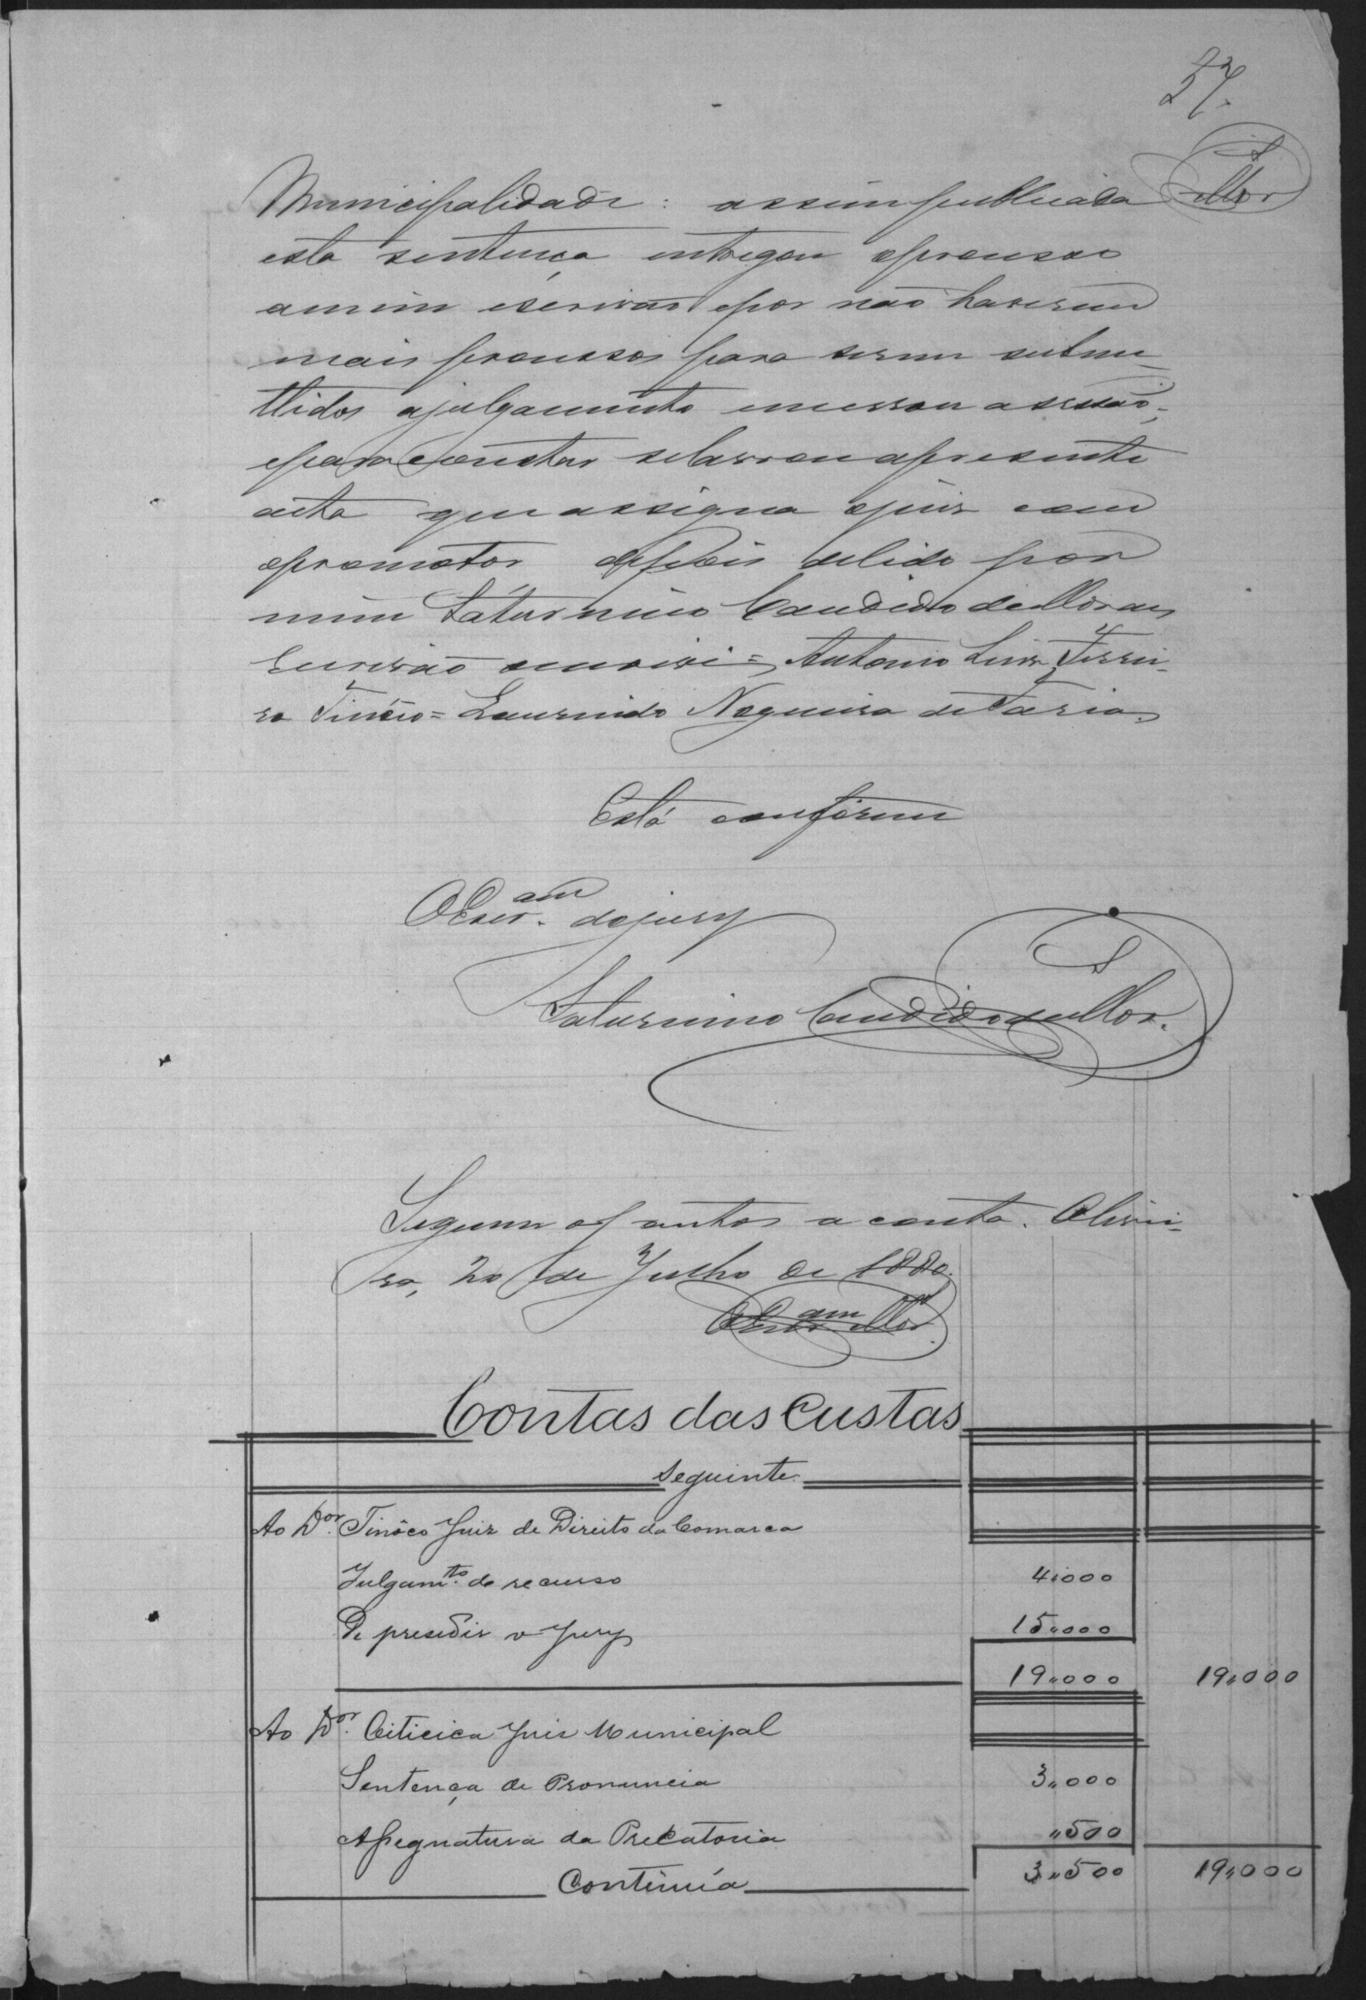 37.
S Mor
Municipalidade: assim publicada
esta sentença entregou oprocesso
amim escrivão epor não haverem
mais processos para serem subme-
ttidos ajulgamento encerrou asessão;
epara constar selavrou apresente
acta que assigna ojuiz com
opromotor depois delida por
mim Saturnino Candido de Moraes
Escrivão escrivi = Antonio Luiz Ferrei-
ra Tinôco = Laurindo Nogueira de Faria.
Está conforme
O Escr.am dojury
Saturnino Candido de Mor.
S
Seguem os autos a conta. Olivei-
ra, 20 de Julho de 1880.
O Escr.am Mor.
Contas das Custas
Seguinte
Ao Dor. Tinôco Juiz de Direito da Comarca
Julgam.to do recurso 4.000
De presedir o Jury 15.000
19.000 19.000
Ao Dor. Oiticica Juiz Municipal
Sentença de Pronuncia 3.000
Assegnatura da Precatoria .500
Continúa 3.500 19.000